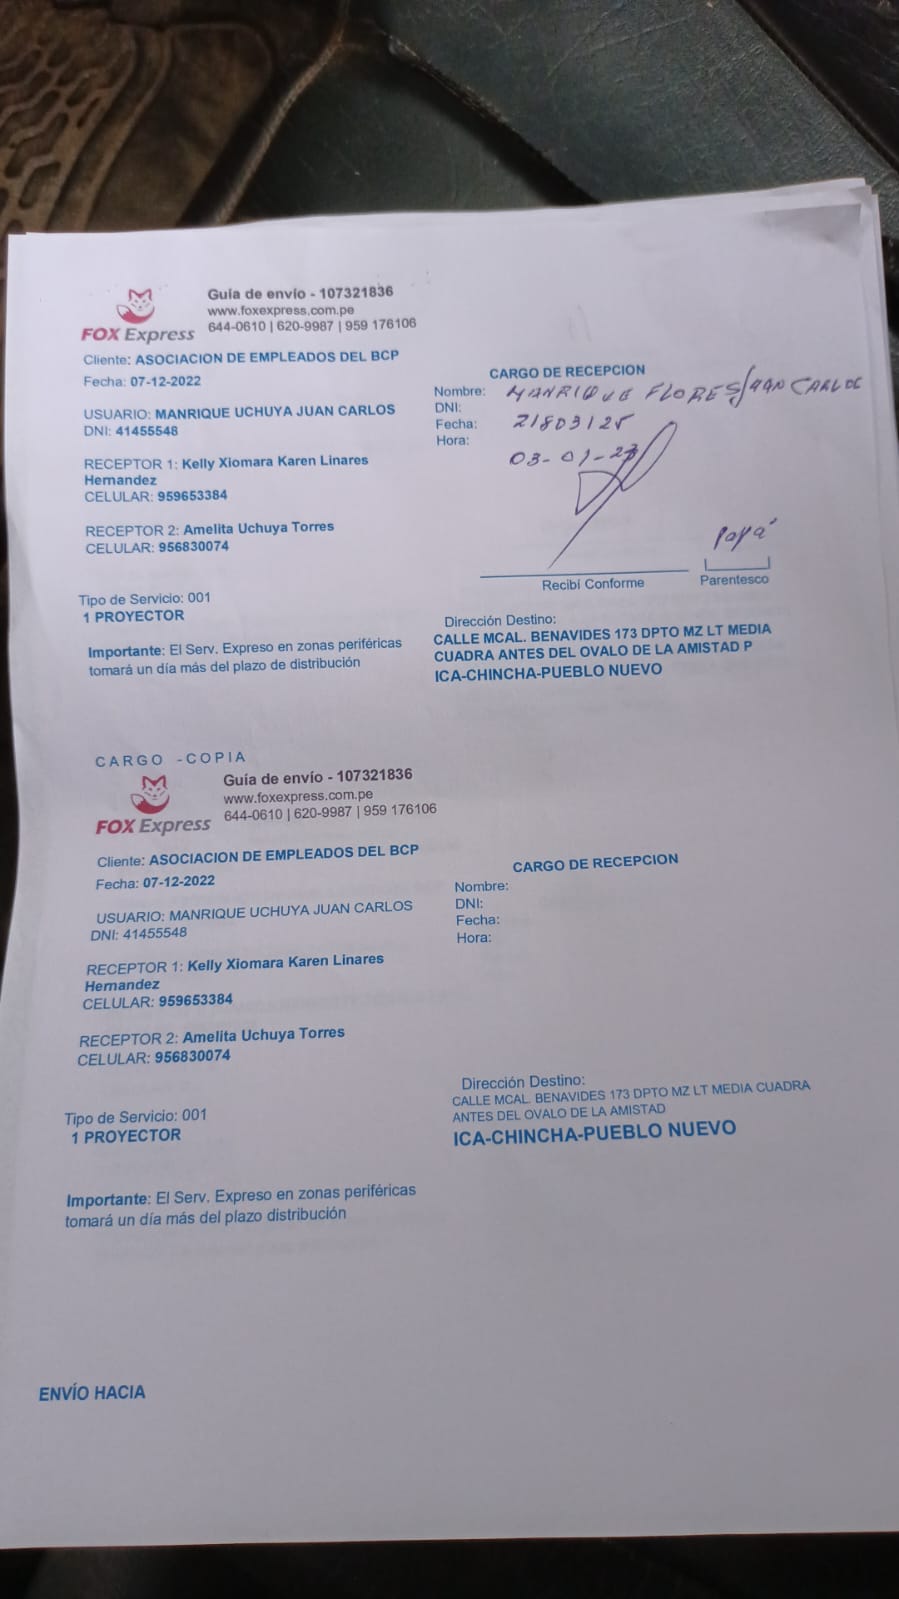 Guía de envío - 107321836
www.foxexpress.com.pe
644-0610 | 620-9987 | 959 176106
FOX Express
Cliente: ASOCIACION DE EMPLEADOS DEL BCP
Fecha: 07-12-2022
USUARIO: MANRIQUE UCHUYA JUAN CARLOS
DNI: 41455548
RECEPTOR 1: Kelly Xiomara Karen Linares
Hernandez
CELULAR: 959653384
RECEPTOR 2: Amelita Uchuya Torres
CELULAR: 956830074
Tipo de Servicio: 001
1 PROYECTOR
Importante: El Serv. Expreso en zonas periféricas
tomará un día más del plazo de distribución
CARGO DE RECEPCION
Nombre: MANRIQUE FLORES JUAN CARLOS
DNI: 21803125
Fecha: 03-01-23
Hora:
Papá
Recibí Conforme
Parentesco
Dirección Destino:
CALLE MCAL. BENAVIDES 173 DPTO MZ LT MEDIA
CUADRA ANTES DEL OVALO DE LA AMISTAD P
ICA-CHINCHA-PUEBLO NUEVO
CARGO -COPIA
Guía de envío - 107321836
www.foxexpress.com.pe
644-0610 | 620-9987 | 959 176106
FOX Express
Cliente: ASOCIACION DE EMPLEADOS DEL BCP
Fecha: 07-12-2022
USUARIO: MANRIQUE UCHUYA JUAN CARLOS
DNI: 41455548
RECEPTOR 1: Kelly Xiomara Karen Linares
Hernandez
CELULAR: 959653384
RECEPTOR 2: Amelita Uchuya Torres
CELULAR: 956830074
Tipo de Servicio: 001
1 PROYECTOR
Importante: El Serv. Expreso en zonas periféricas
tomará un día más del plazo distribución
CARGO DE RECEPCION
Nombre:
DNI:
Fecha:
Hora:
Dirección Destino:
CALLE MCAL. BENAVIDES 173 DPTO MZ LT MEDIA CUADRA
ANTES DEL OVALO DE LA AMISTAD
ICA-CHINCHA-PUEBLO NUEVO
ENVÍO HACIA